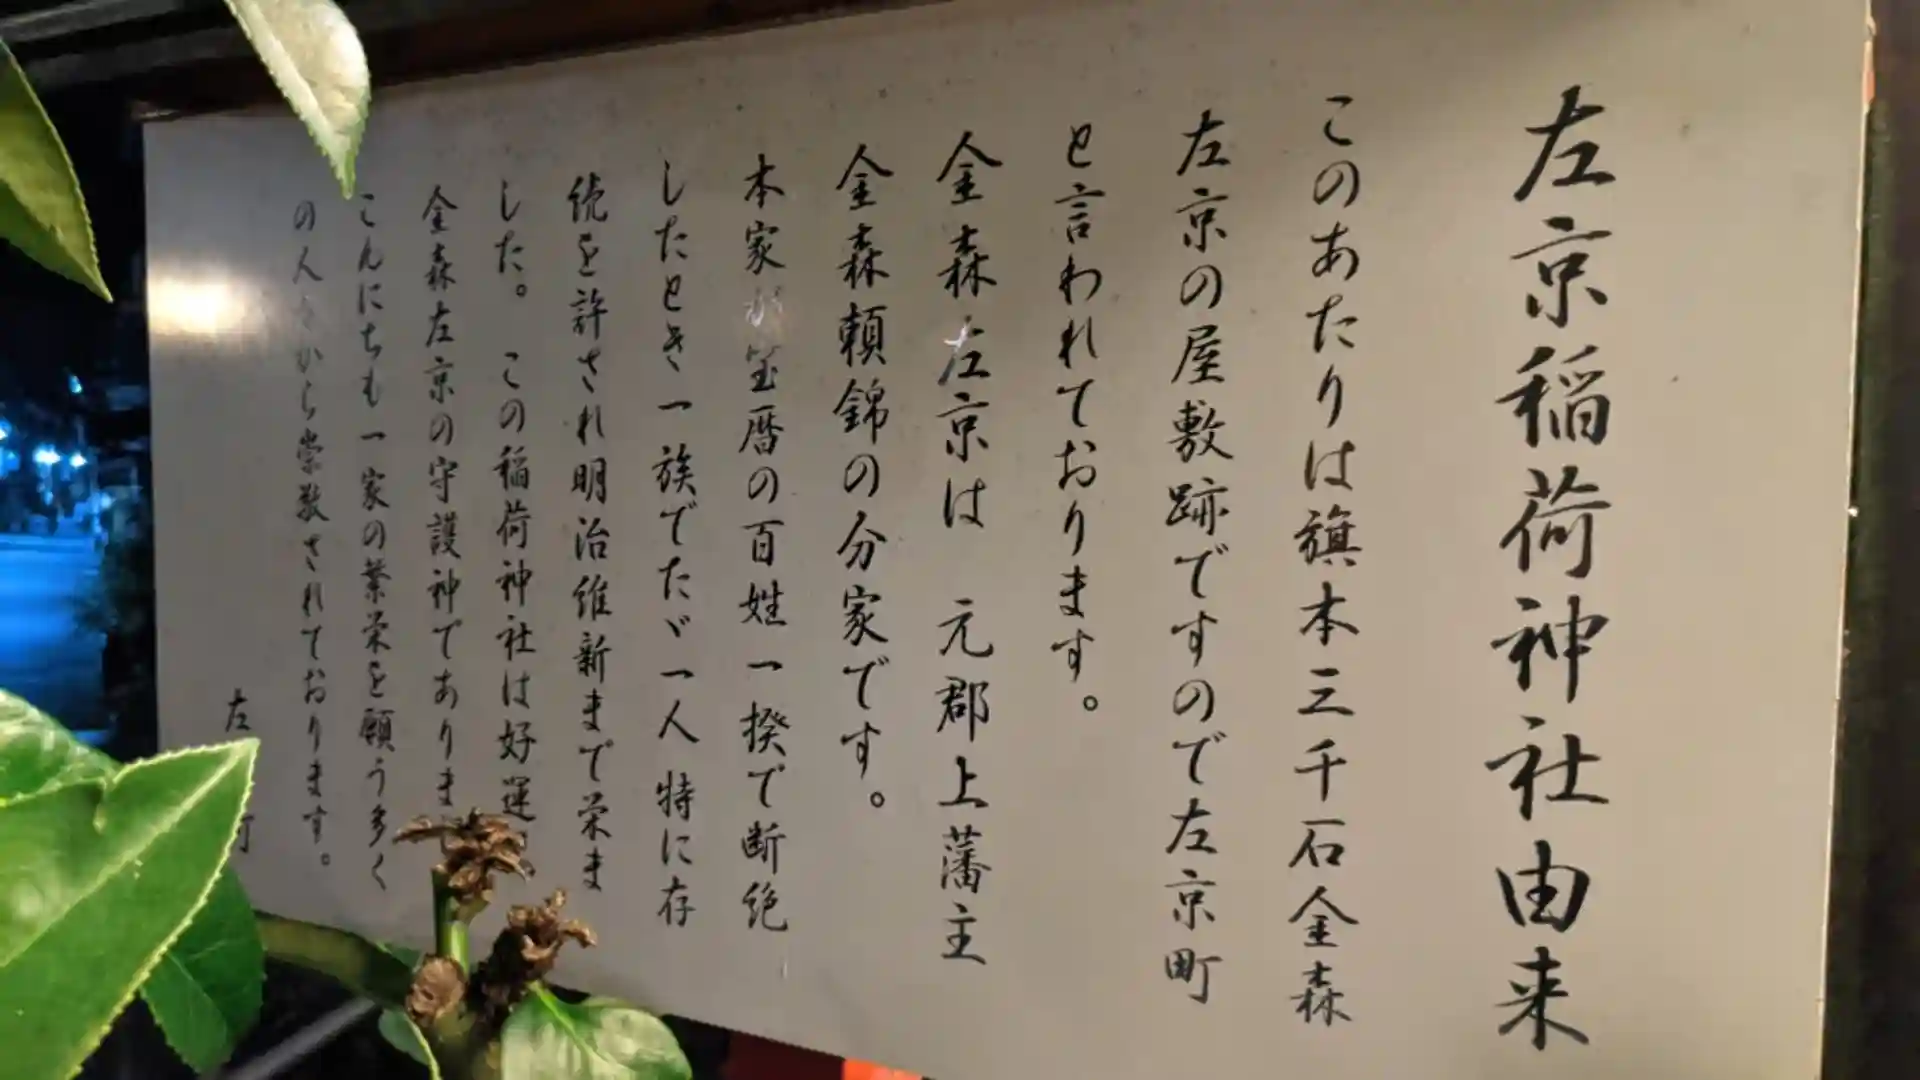 左京稲荷神社由来
このあたりは旗本三千石金森
左京の屋敷跡ですので左京町
と言われております。
金森左京は 元郡上藩主
金森頼錦の分家です。
本家が宝暦の百姓一揆で断絶
したとき一族でたゞ一人特に存
続を許され明治維新まで栄ま
した。 この稲荷神社は好運
金森左京の守護神でありま
こんにちも一家の繁栄を願う多く
の人々から崇敬されております。
左